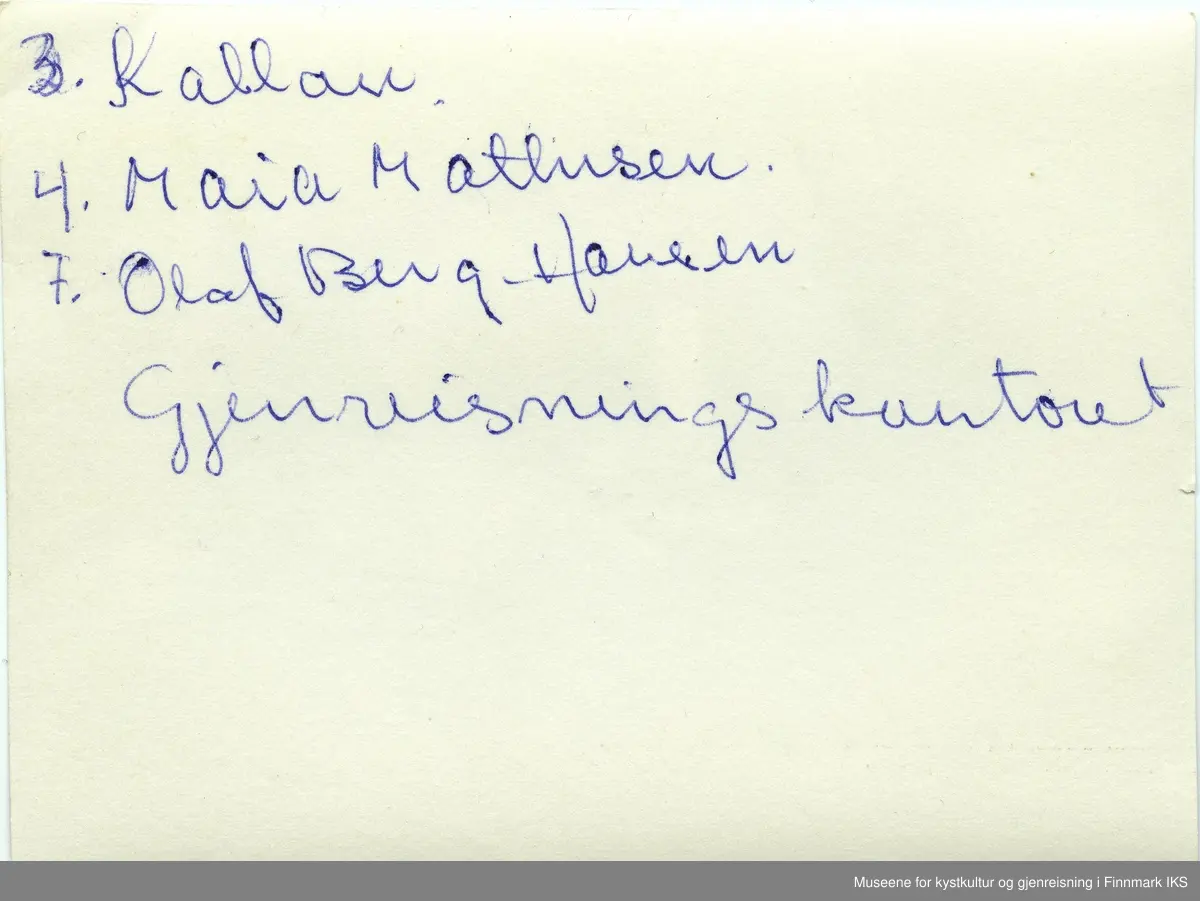 3. Kallan.
4. Maia Mathisen.
7. Olaf Berg-Hansen
Gjenreisningskontoret
Museene for kystkultur og gjenreisning i Finnmark IKS